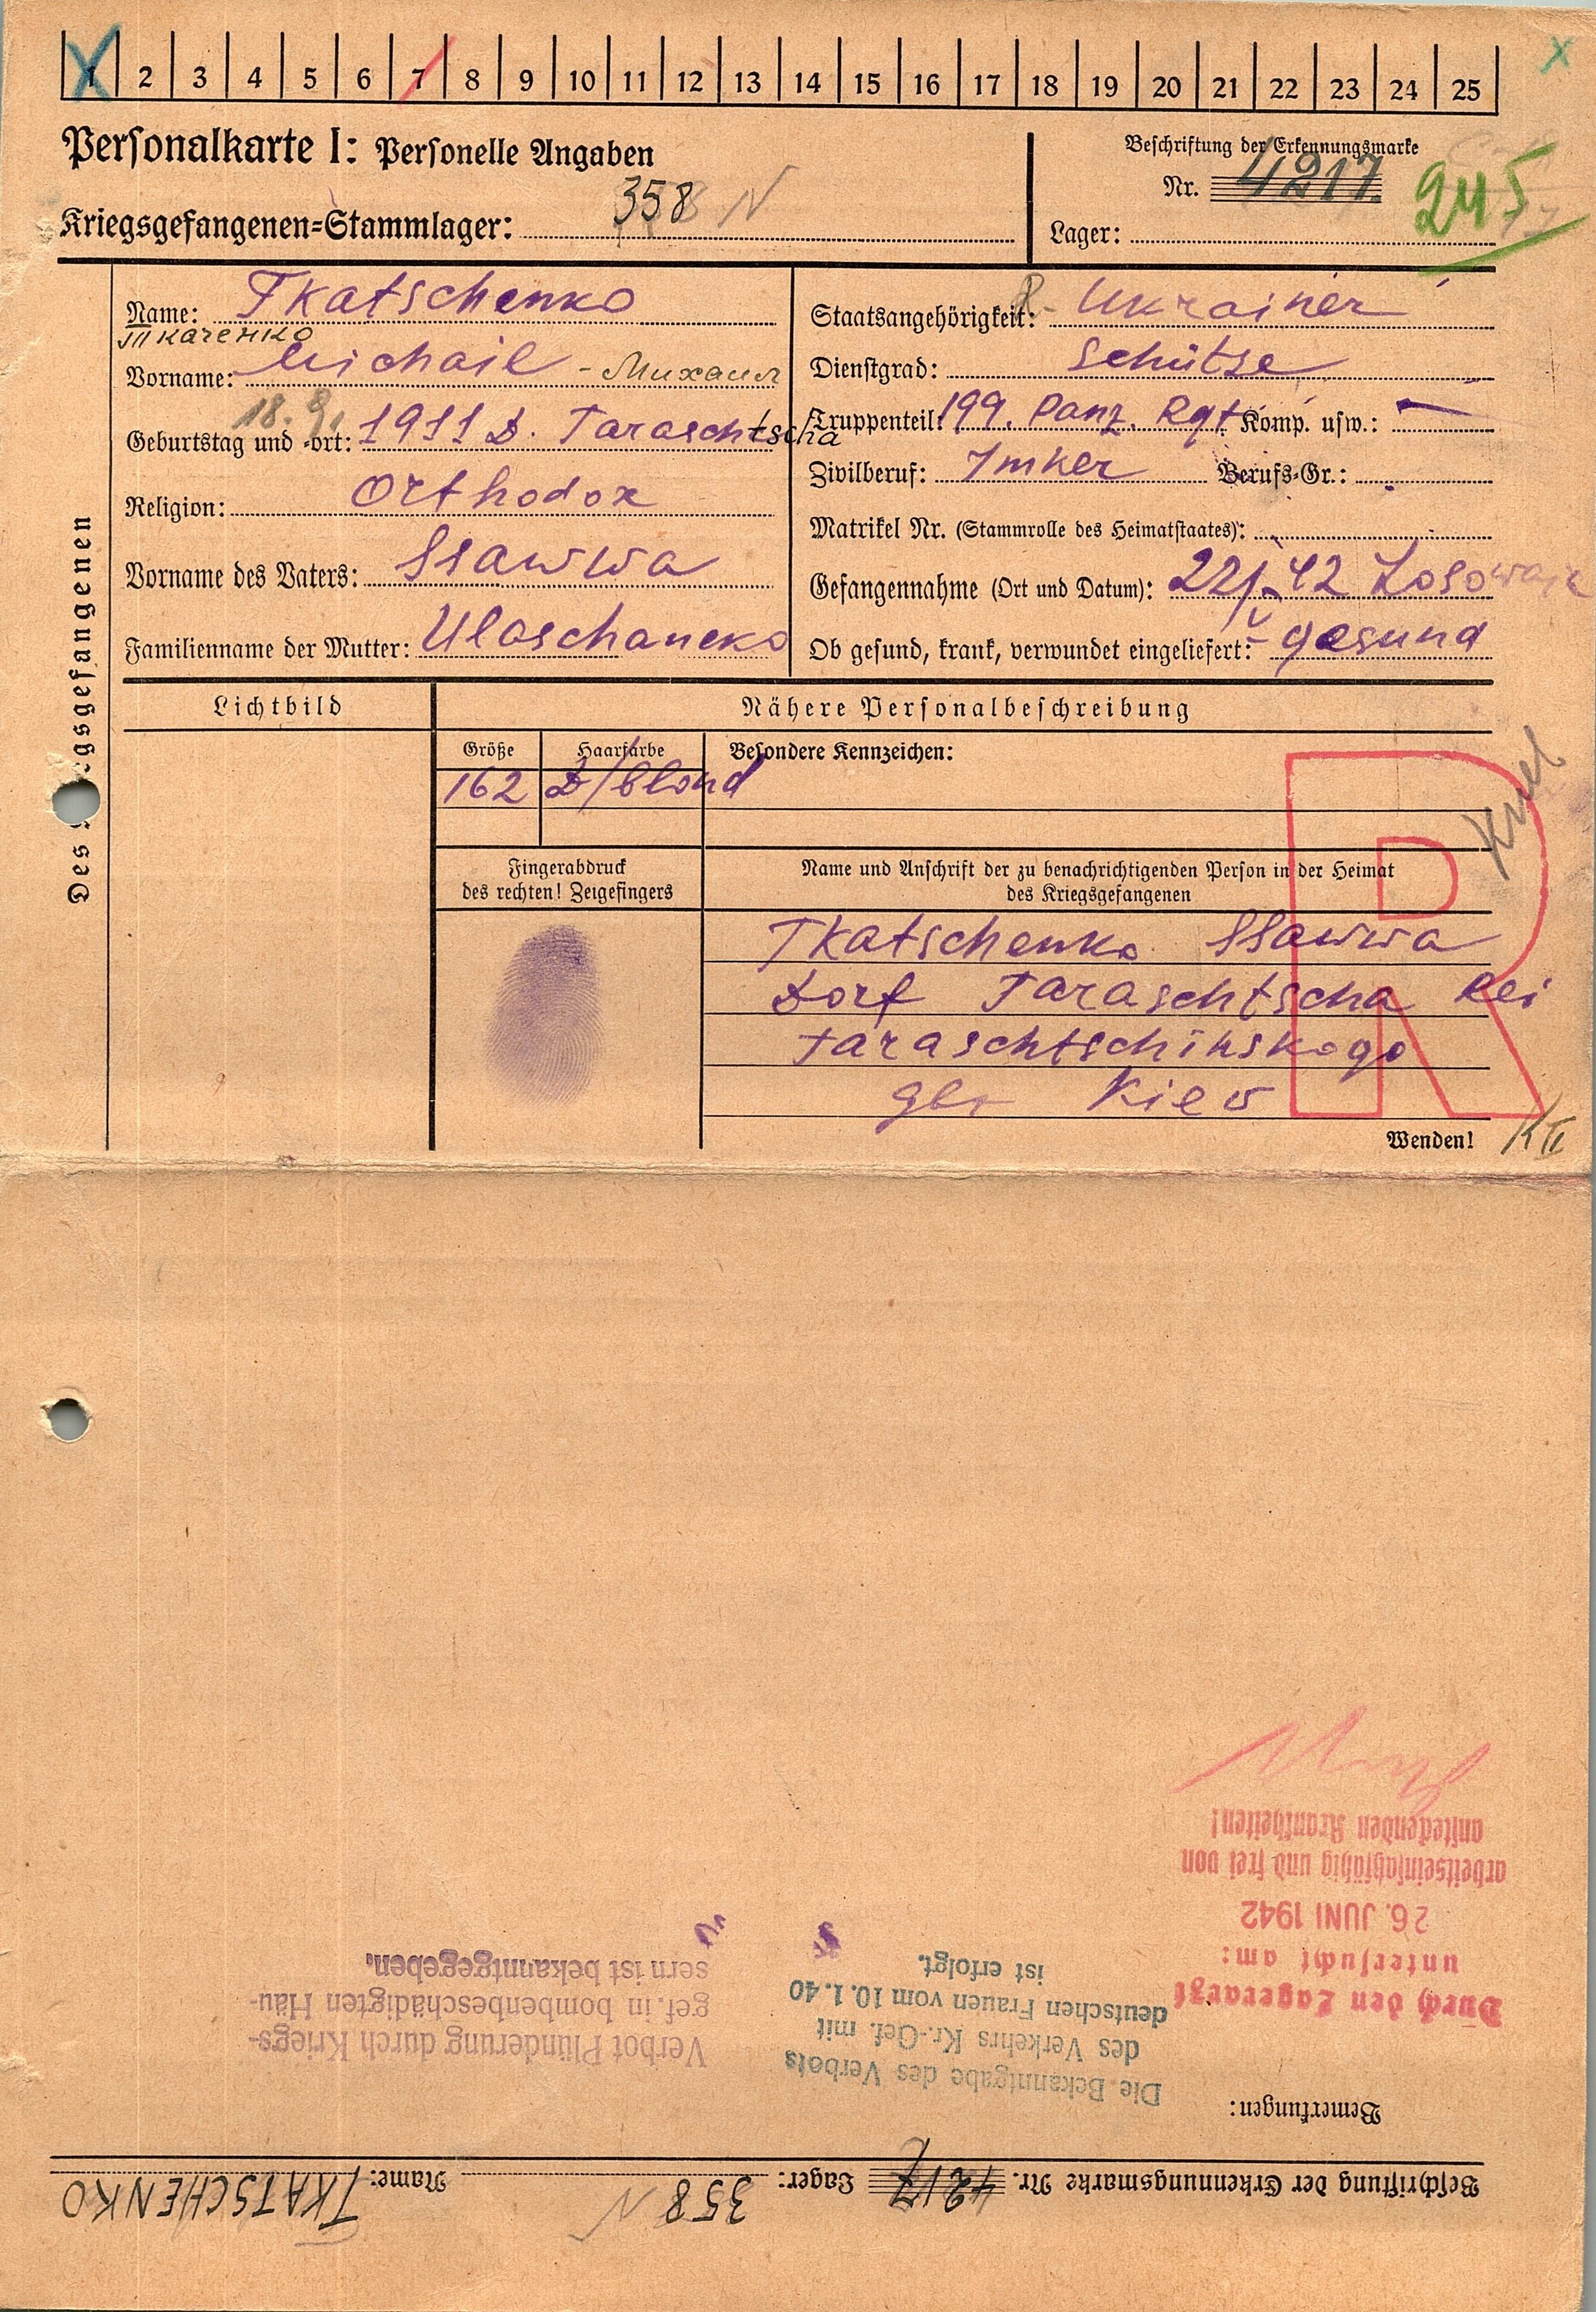 1 2 3 4 5 6 7 8 9 10 11 12 13 14 15 16 17 18 19 20 21 22 23 24 25
Personalkarte I: Personelle Angaben
Kriegsgefangenen=Stammlager: 358 N
Beschriftung der Erkennungsmarke
Nr. 4217
245
Lager:
Des Kriegsgefangenen
Name: Tkatschenko
Ткаченко
Vorname: Michail - Михаил
18. 9.
Geburtstag und -ort: 1911 D. Taraschtscha
Religion: Orthodox
Vorname des Vaters: Ssawwa
Familienname der Mutter: Uloschaneko
Staatsangehörigkeit: R - Ukrainer
Dienstgrad: Schütse
Truppenteil: 199. Panz. Rgt. Komp. usw.: —
Zivilberuf: Imker Berufs=Gr.:
Matrikel Nr. (Stammrolle des Heimatstaates):
Gefangennahme (Ort und Datum): 22/V 42 Losowaja
Ob gesund, krank, verwundet eingeliefert: gesund
Lichtbild
Nähere Personalbeschreibung
Größe Haarfarbe Besondere Kennzeichen:
162 D/blond
Fingerabdruck
des rechten! Zeigefingers
Name und Anschrift der zu benachrichtigenden Person in der Heimat
des Kriegsgefangenen
Tkatschenko Ssawwa
Dorf Taraschtscha Rei
Taraschtschinskogo
Gbr Kiew
R
Wenden!
Beschriftung der Erkennungsmarke Nr. 4217 Lager: 358 N Name: TKATSCHENKO
Bemerkungen:
Durch den Lagerarzt
untersucht am:
26. JUNI 1942
arbeitseinsatzfähig und frei von
ansteckenden Krankheiten!
Die Bekanntgabe des Verbots
des Verkehrs Kr.-Gef. mit
deutschen Frauen vom 10.1.40
ist erfolgt.
Verbot Plünderung durch Kriegs-
gef. in bombenbeschädigten Häu-
sern ist bekanntgegeben.